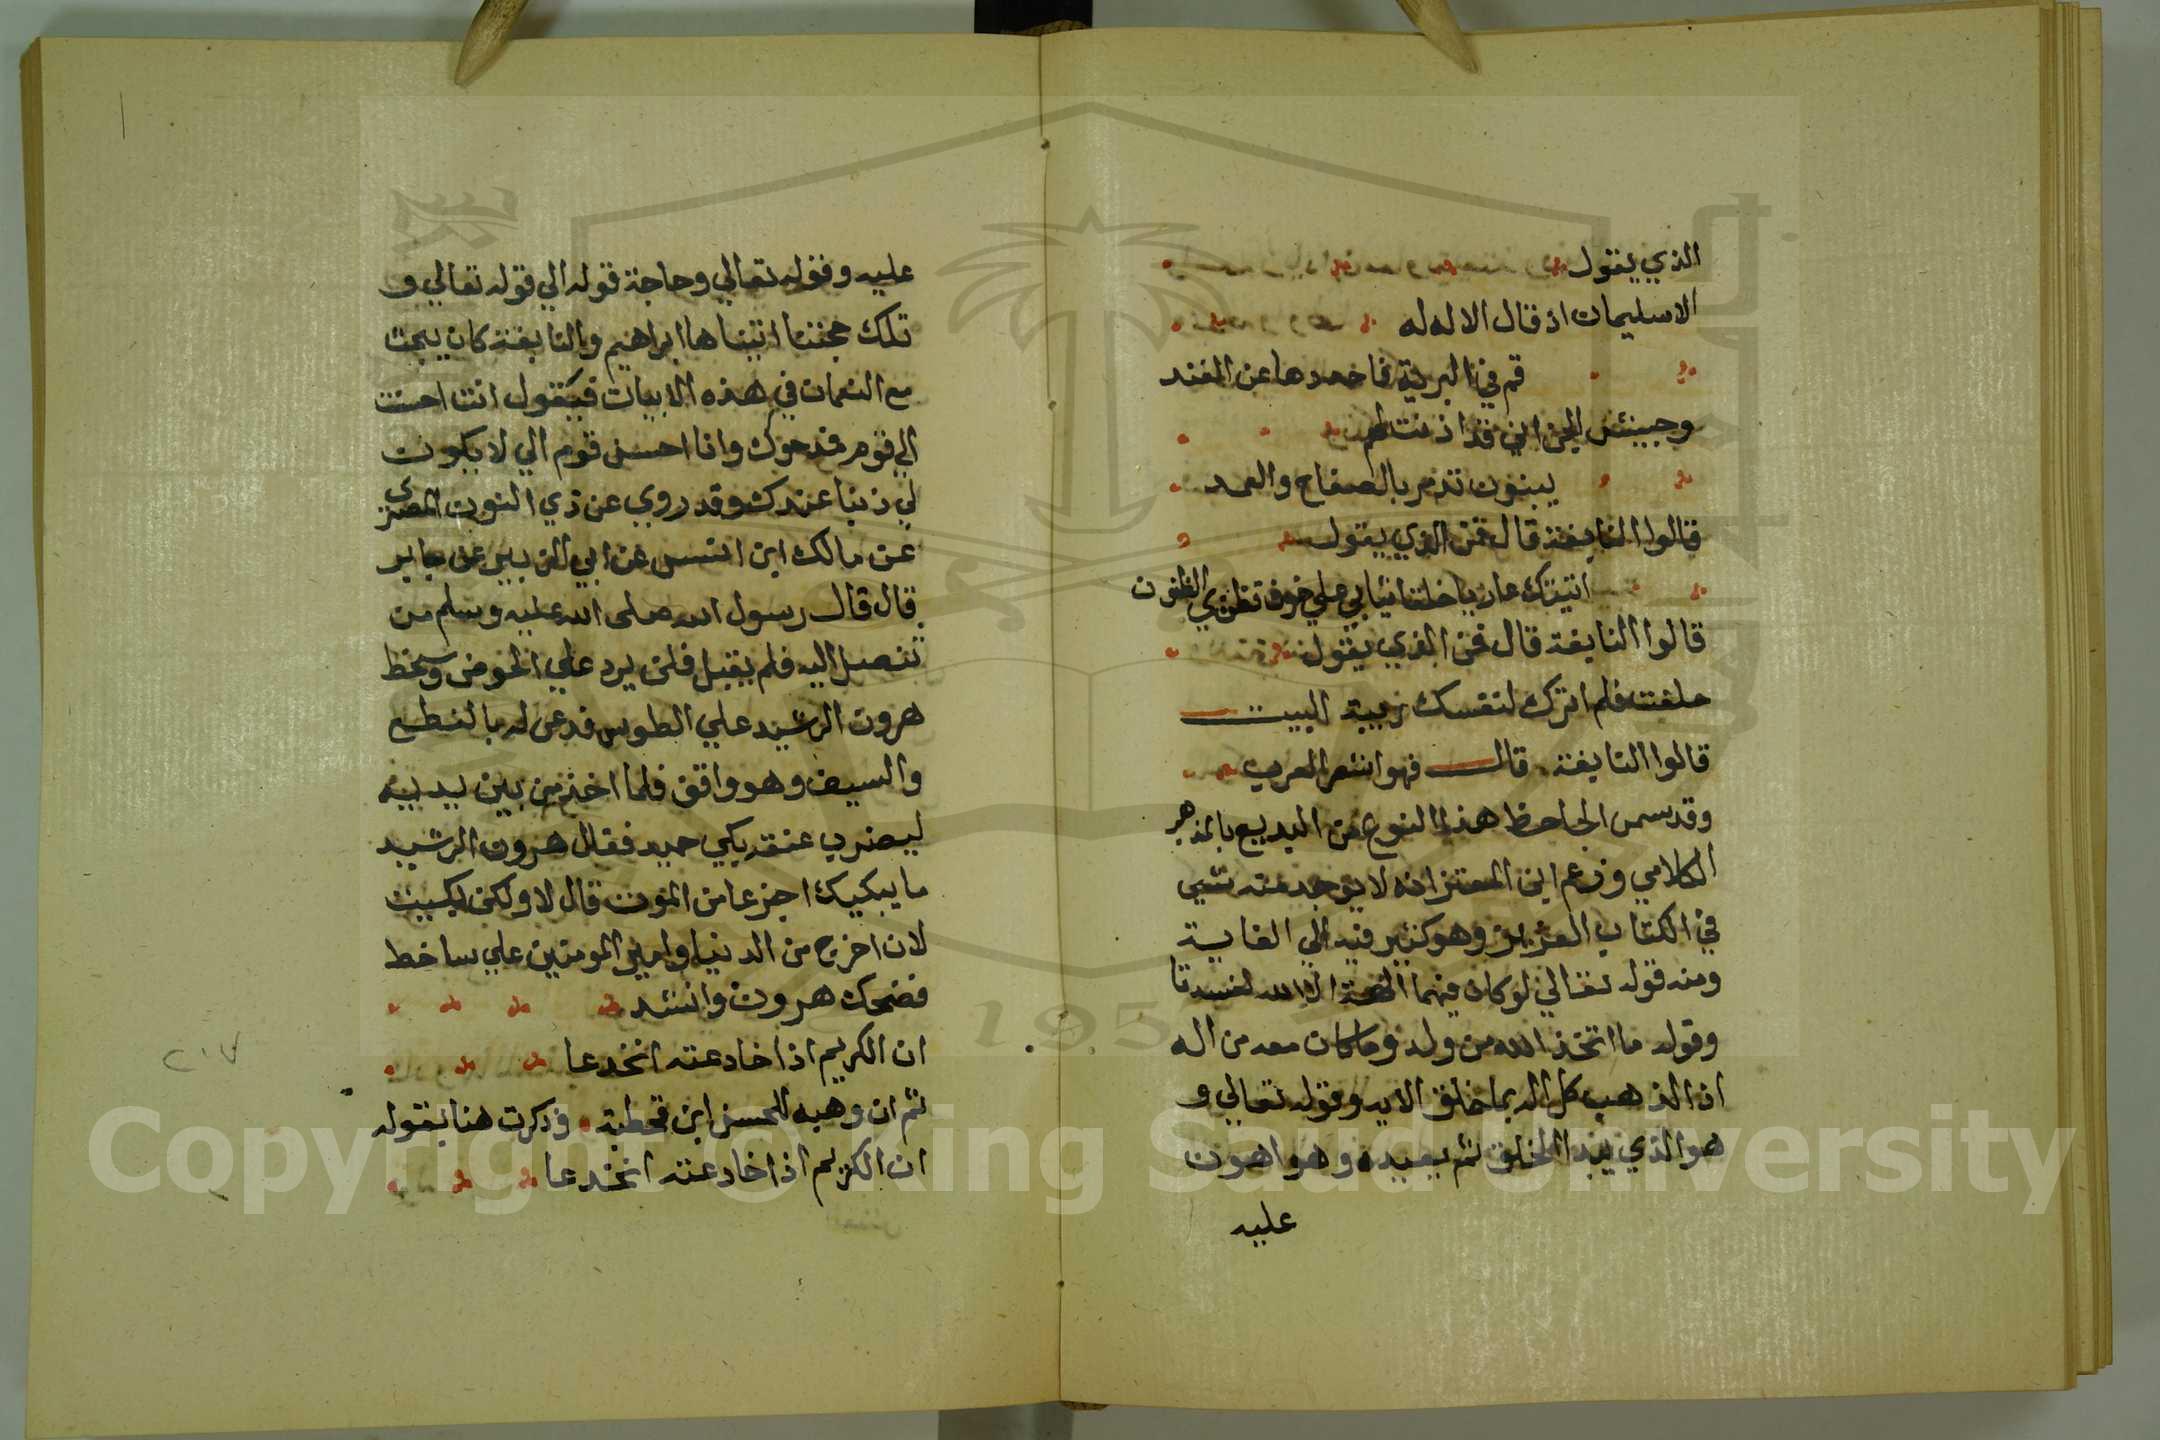 الذي يقول
الا سليمان اذ قال الاله له
قم في البرية فاحددها عن الفند
وجيش الجن اني قد اذنت لهم
يبنون تدمر بالصفاح والعمد
قالوا النابغة قال فمن الذي يقول
اتيتك عاريا خلقا ثيابي علي خوف تظن بي الظنون
قالوا النابغة قال فمن الذي يقول
حلفت فلم اترك لنفسك ريبة البيت
قالوا النابغة قال فهو اشعر العرب
وقد سمى الجاحظ هذا النوع من البديع بالمذهب
الكلامي وزعم ابن المعتز انه لا يوجد منه شيي
في الكتاب العزيز وهو كثير فيه الي الغاية
ومنه قوله تعالي لو كان فيهما الهة الا الله لفسدتا
وقوله ما اتخذ الله من ولد وما كان معه من اله
اذا لذهب كل اله بما خلق الايه وقوله تعالي و
هو الذي يبدا الخلق ثم يعيده وهو اهون
عليه
عليه وقوله تعالي وحاجة قوله الي قوله تعالي و
تلك حجتنا اتيناها ابراهيم والنابغة كان يبحث
مع النعمان في هذه الابيات فيقول انت احسنت
الي قوم فمدحوك وانا احسن قوم الي لا يكون
لي ذنبا عندك وقد روي عن ذي النون المصري
عن مالك ابن انس عن ابي الزبير عن جابر
قال قال رسول الله صلى الله عليه وسلم من
تنصل اليه فلم يقبل فلن يرد علي الحوض وسخط
هرون الرشيد علي الطوسي فدعى له بالنطع
والسيف وهو واقف فلما اخذ من بين يديه
ليضرب عنقه بكي حميد فقال هرون الرشيد
ما يبكيك اجزعا من الموت قال لا ولكن بكيت
لان اخرج من الدنيا وامير المومنين علي ساخط
فضحك هرون وانشد
ان الكريم اذا خادعته انخدعا
ثم ان وهبه للحسن ابن قحطبة وذكرت هنا بقوله
ان الكريم اذا خادعته انخدعا
٢٠٧
Copyright © King Saud University
195